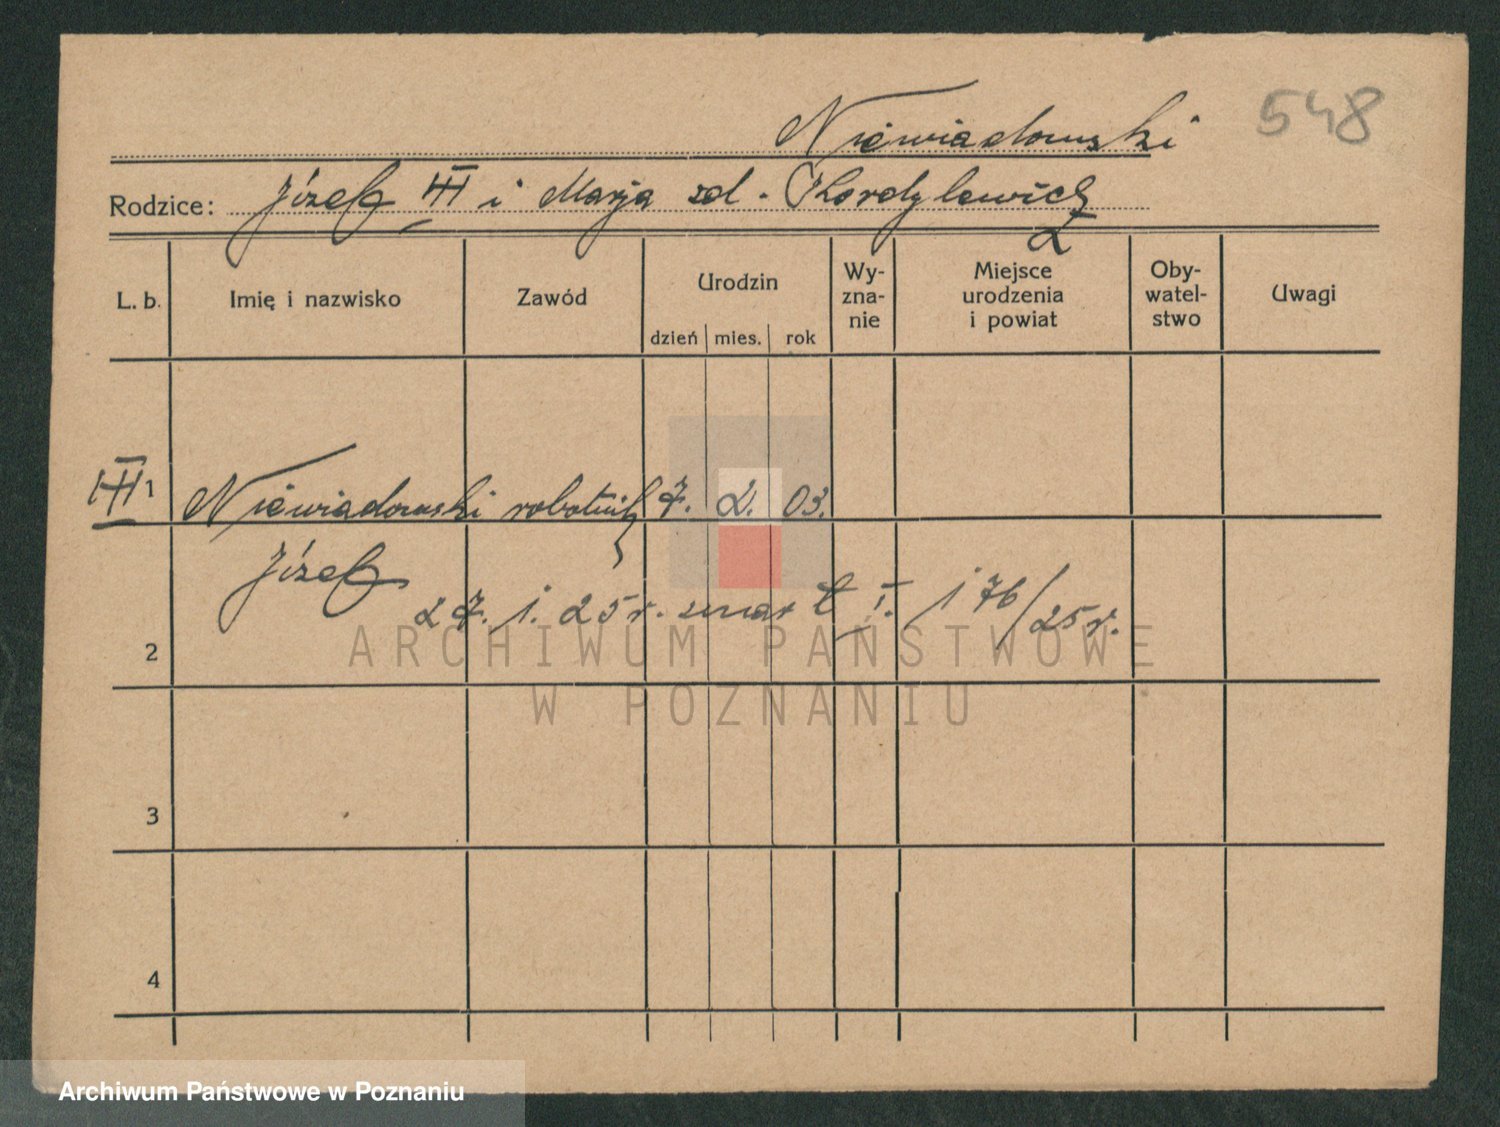 548
Niewiadomski
Rodzice: Józef III i Marja zd. Kordylewicz
L. b. Imię i nazwisko Zawód Urodzin dzień mies. rok Wy-zna-nie Miejsce urodzenia i powiat Oby-watel-stwo Uwagi
III 1 Niewiadomski robotnik 7. 2. 03.
Józef
27. 1. 25 r. zmarł I. 176/25 r.
2
ARCHIWUM PAŃSTWOWE
W POZNANIU
3
4
Archiwum Państwowe w Poznaniu